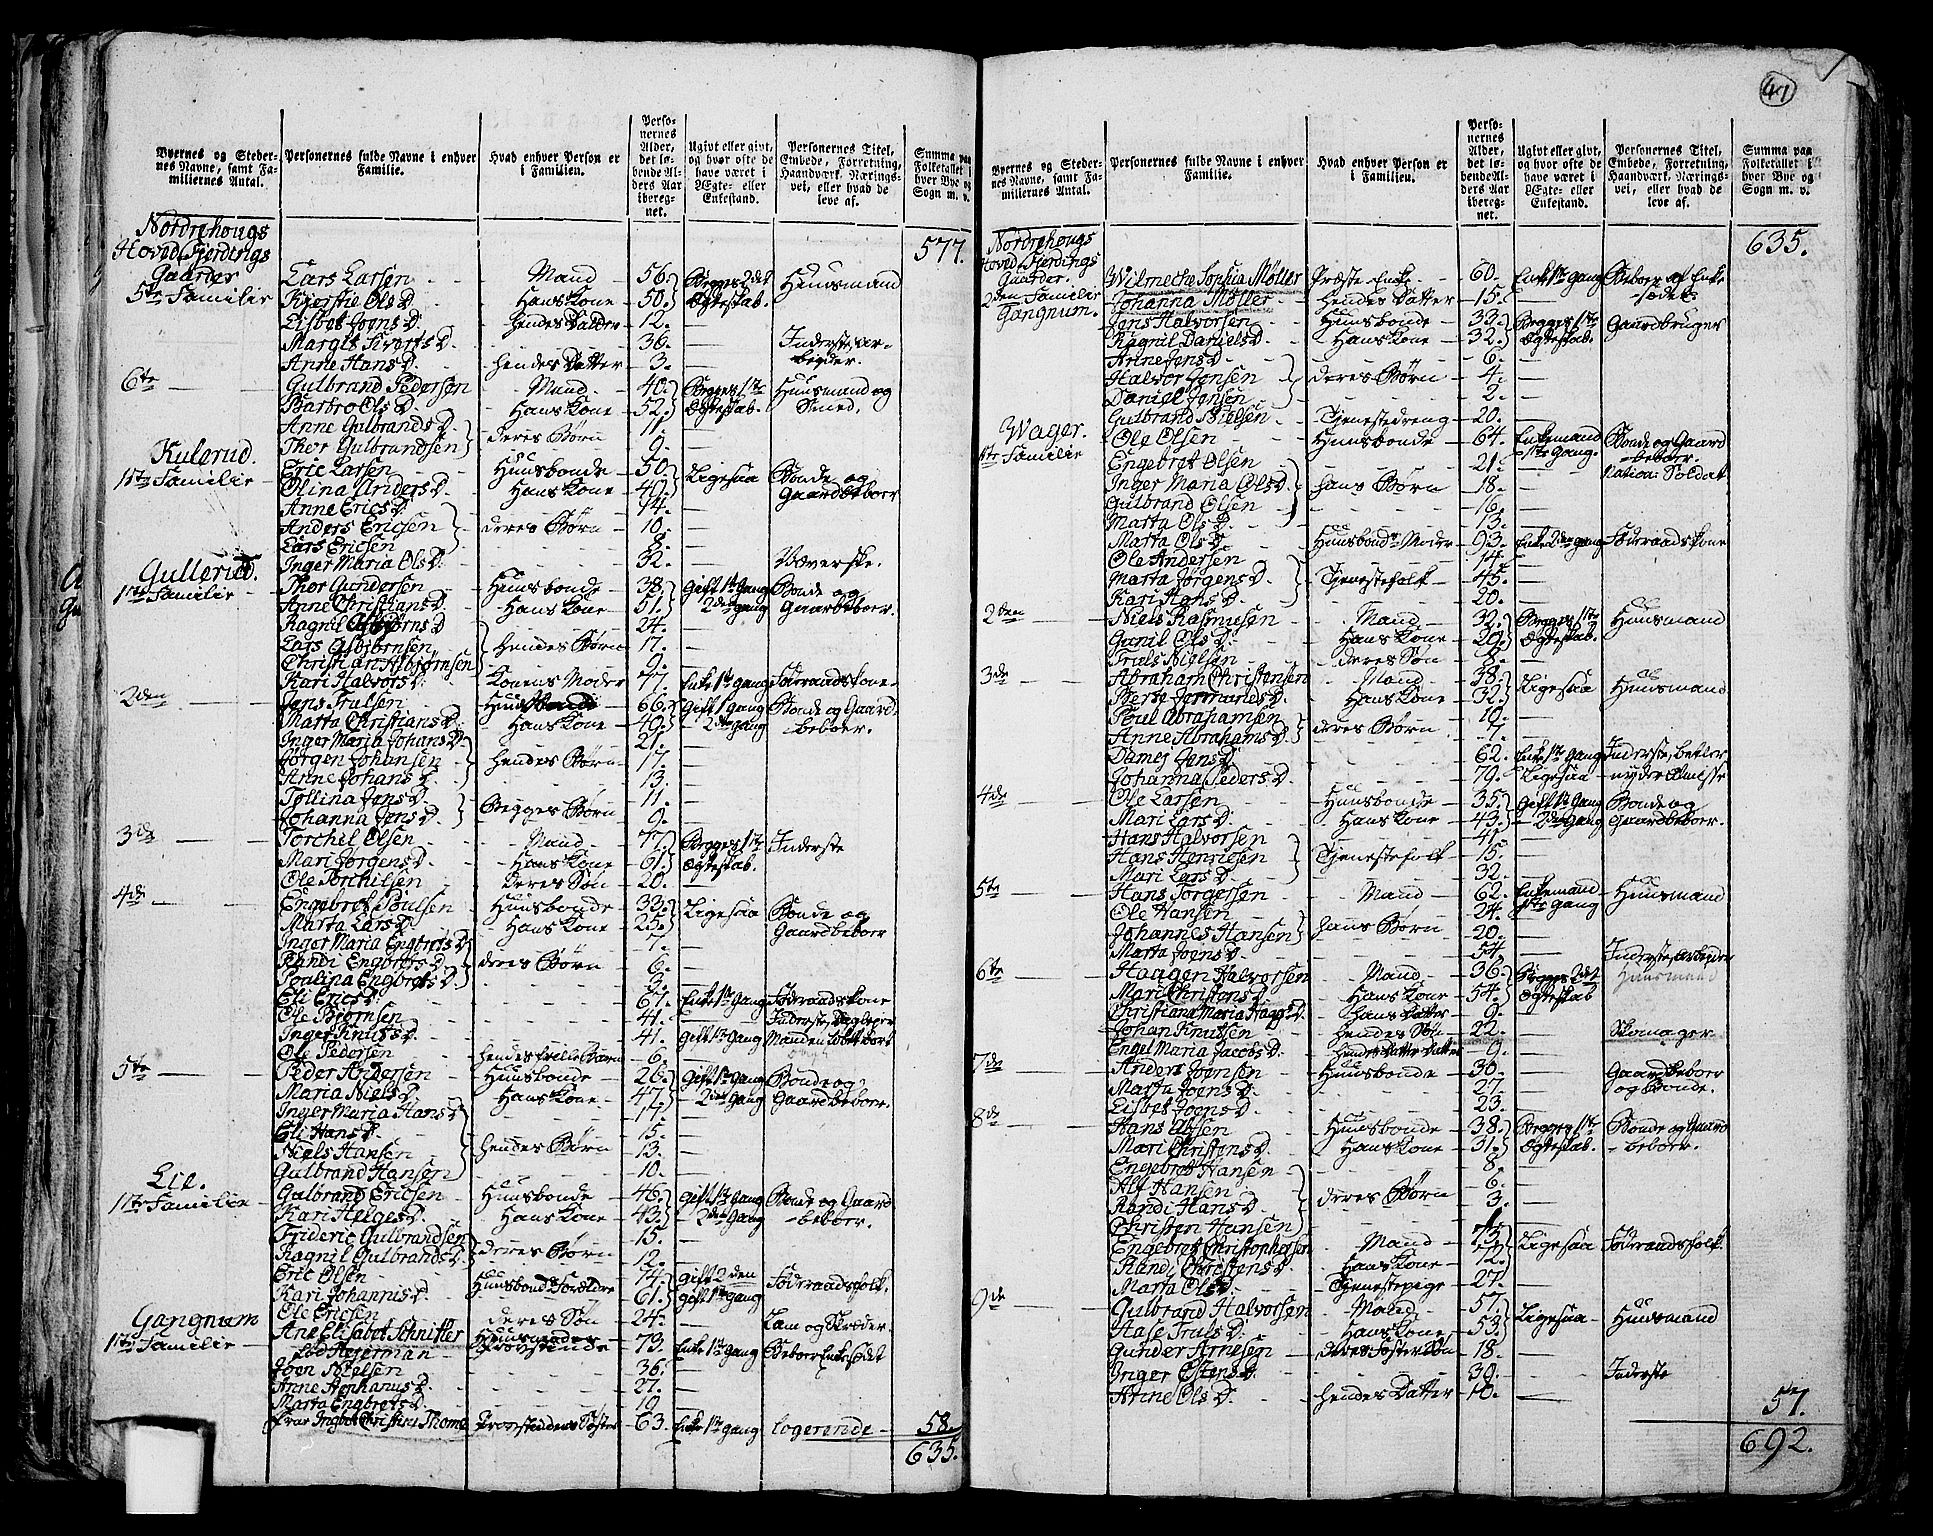 41
Byernes og Steder-
nes Navne, samt Fa-
miliernes Antal.
Personernes fulde Navne i enhver
Familie.
Hvad enhver Person er
i Familien.
Perso-
nernes
Alder,
det lø-
bende Al-
ders Aar
iberegnet.
Ugivt eller givt,
og hvor ofte de
have været i
Ægte- eller
Enkestand.
Personernes Titel,
Embede, Forretning,
Haandværk, Nærings-
vei, eller hvad de
leve af.
Summa paa
Folketallet i
hver Bye og
Sogn m. v.
Nordrehougs
Hoved Fjerdings
Gaarder
577.
5te Familie Lars Larsen Mand 56. Begges 2det Huusmand
Kjerstie Ols D. Hans Kone 50. Egteskab.
Lisbet Joens D. Hendes Datter 12. —
Margit Siverts D. 36. — Inderste, ar-
beyder.
Anne Hans D. hendes Datter 3. —
6te Gulbrand Pedersen Mand 40. Begges 1te Huusmand og
Barbro Ols D. Hans Kone 52. Egteskab. Smed.
Anne Gulbrands D. deres Børn 11. —
Thor Gulbrandsen 9. —
Kulerud.
1te Familie Eric Larsen Huusbonde 50. Ligesaa Bonde og
Olina Anders D. Hans Kone 49. Gaardbeboer
Anne Erics D. 14. —
Anders Ericsen deres Børn 10. —
Lars Ericsen 8. —
Inger Maria Ols D. 32. — Væverske.
Gullerud.
1te Familie Thor Gundersen Huusbonde 38. Gift 1te Gang Bonde og
Anne Christians D. Hans Kone 51. 2den gang Gaardbeboer.
Ragnil Asbjørns D. 24. —
Lars Asbjørnsen hendes Børn 17. —
Christian Asbjørnsen 9. —
Kari Halvors D. Konens Moder 77. Enke 1te gang Føderaadskone
2den Jens Trulsen Huusbonde 66. Gift 1 gang Bonde og Gaard-
Marta Christians D. Hans Kone 40. 2den gang beboer.
Inger Maria Johans D. 21. —
Jørgen Johansen hendes Børn 17. —
Anne Johans D. 13. —
Tollina Jens D. Begges Børn 11. —
Johanna Jens D. 9. —
3de Torchel Olsen Mand 77. Begges 1te Inderste
Mari Jørgens D. Hans Kone 61. Egteskab.
Ole Torchilsen deres Søn 20. —
4de Engebret Poulsen Huusbonde 32. Ligesaa Bonde og
Marta Lars D. Hans Kone 25. Gaardbeboer
Inger Maria Engbrets D. 7. —
Randi Engbrets D. deres Børn 6. —
Poulina Engbrets D. 2. —
Eli Erics D. 67. Enke 1te Gang Føderaadskone
Ole Bjørnsen 41. — Inderste, Daglejer
Inger Knuts D. 41. Gift 1te Gang
Ole Pedersen 6. —
5te Peder Andersen Huusbonde 26. Gift 1te Gang Bonde og
Maria Niels D. Hans Kone 47. 2den Gang Gaardbeboer.
Inger Maria Hans D. 17. —
Eli Hans D. 15. —
Niels Hansen hendes Børn 13. —
Gulbrand Hansen 10. —
Lie.
1te Familie Gulbrand Ericsen Huusbonde 46. Gift 1te Gang Bonde og Gaard
Kari Helges D. Hans Kone 43. 2den Gang beboer.
Frideric Gulbrandsen deres Børn 15. —
Ragnil Gulbrands D. 12. —
Eric Olsen Huusbond Forældre 74. gift 2den Føderaadsfolk.
Kari Johannis D. 61. gift 1te gang
Ole Ericsen deres Søn 24. — Lam og Skræder
Gangnum
1te Familie Ane Elisabet Schnitler
fød Hejerman Provstinde 73. Enke 1te Gang Beboer Enkesædet
Joen Nielsen 36. —
Anne Stephanus D. 27. —
Marta Engbrets D. 19. —
Frue Ingbor Christine Thome Provstindens Søster 63. Enke 1te gang logerende 58.
635.
Byernes og Steder-
nes Navne, samt Fa-
miliernes Antal.
Personernes fulde Navne i enhver
Familie.
Hvad enhver Person er
i Familien.
Perso-
nernes
Alder,
det lø-
bende Al-
ders Aar
iberegnet.
Ugivt eller givt,
og hvor ofte de
have været i
Ægte- eller
Enkestand.
Personernes Titel,
Embede, Forretning,
Haandværk, Nærings-
vei, eller hvad de
leve af.
Summa paa
Folketallet i
hver Bye og
Sogn m. v.
Nordrehougs
Hoved Fjerdings
Gaarder.
635.
2den Familie Wilmeche Sophia Møller Præste Enke 60. Enke 1te gang Beboer af Enke
Gangnum. Johanna Møller hendes Datter 15. — sædet
Jens Halvorsen Huusbonde 33. Begges 1te Gaardbruger
Ragnil Daniels D. Hans Kone 32. Egteskab.
Anne Jens D. 6. —
Halvor Jensen deres Børn 4. —
Daniel Jensen 2. —
Gulbrand Nielsen Tjenestedreng 20. —
Wager.
1te Familie Ole Olsen Huusbonde 64. Enkemand Bonde og Gaard
1te Gang. beboer.
Engebret Olsen 21. — Nation: Soldat
Inger Maria Ols D. hans Børn 18. —
Gulbrand Olsen 16. —
Marta Ols D. 13. —
Marta Ols D. Huusbondens Moder 93. Enke 2den gang Føderaadskone
Ole Andersen 14. —
Marta Jørgens D. Tjenestefolk 45. —
Kari Hans D. 20. —
2den Niels Rasmusen Mand 32. Begges 1te Huusmand
Gunil Ols D. Hans Kone 29. Egteskab.
Truls Nielsen deres Søn 8. —
3de Abraham Christensen Mand 38. Ligesaa Huusmand
Berte Jermunds D. Hans Kone 32.
Poul Abrahamsen deres Børn 10. —
Anne Abrahams D. 7. —
Damej Jens D. 62. Enke 1te Gang Inderste, betler
Johanna Peders D. 79. Ligesaa nyder Almisse
4de Ole Larsen Huusbonde 35. Gift 1te Gang Bonde og
Mari Lars D. Hans Kone 43. 2den Gang Gaardbeboer.
Hans Halvorsen 41. —
Hans Henricsen Tjenestefolk 15. —
Mari Lars D. 32. —
5te Hans Torgersen Mand 62. Enkemand Huusmand
1te gang
Ole Hansen hans Børn 24. —
Johannes Hansen 20. —
Marta Joens D. 54. — Inderste, arbeider
6te Haagen Halvorsen Mand 36. Begges 2det Huusmand
Mari Christens D. Hans Kone 54. Egteskab
Christiana Maria Haag: D. hans Datter 9. —
Johan Knutsen hendes Søn 22. — Skomager
Engel Maria Jacobs D. hendes Datter Datter 9. —
7de Anders Joensen Huusbonde 30. — Gaardbeboer
Marta Joens D. 27. — og Bonde.
Lisbet Joens D. 23. —
8de Hans Alfsen Huusbonde 38. Begges 1te Bonde og Gaard
Mari Christens D. Hans Kone 31. Egteskab. beboer.
Engebret Hansen 8. —
Alf Hansen deres Børn 6. —
Randi Hans D. 3. —
Christen Hansen 1. —
Engebret Christophersen Mand 73. Ligesaa Føderaadsfolk.
Randi Christens D. Hans Kone 72.
Marta Ols D. Tjenestepige 27. —
9de Gulbrand Halvorsen Mand 57. Ligesaa Huusmand
Aase Truls D. Hans Kone 53.
Gunder Arnesen deres Søster Søn 18. —
Inger Estens D. 39. — Inderste
Anne Ols D. hendes Datter 10. —
57.
692.